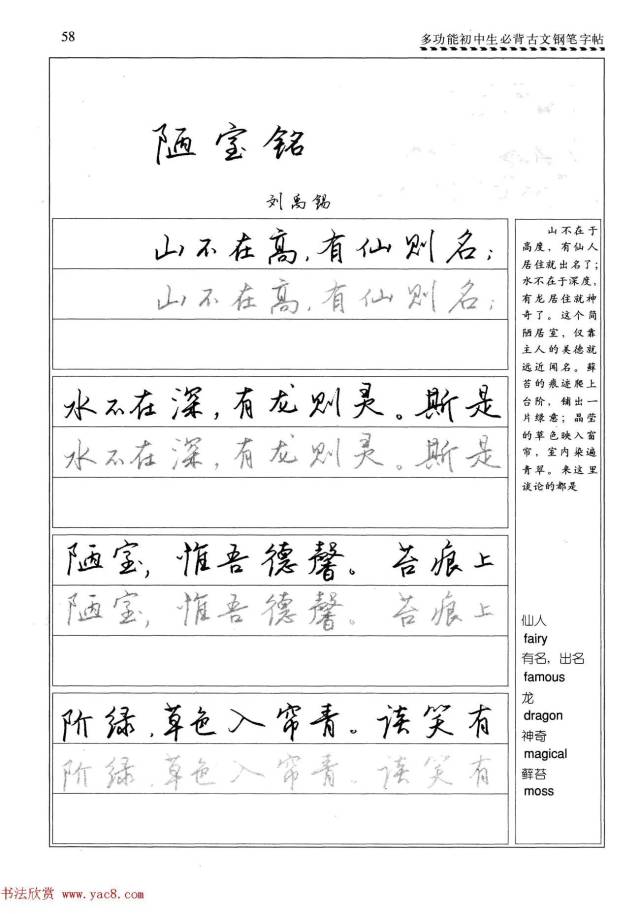 58
多功能初中生必背古文钢笔字帖
陋室铭
刘禹锡
山不在高,有仙则名;
山不在高,有仙则名;
水不在深,有龙则灵。斯是
水不在深,有龙则灵。斯是
陋室,惟吾德馨。苔痕上
陋室,惟吾德馨。苔痕上
阶绿,草色入帘青。谈笑有
阶绿,草色入帘青。谈笑有
山不在于
高度,有仙人
居住就出名了;
水不在于深度,
有龙居住就神
奇了。这个简
陋居室,仅靠
主人的美德就
远近闻名。藓
苔的痕迹爬上
台阶,铺出一
片绿意;晶莹
的草色映入窗
帘,室内染遍
青翠。来这里
谈论的都是
仙人
fairy
有名,出名
famous
龙
dragon
神奇
magical
藓苔
moss
书法欣赏 www.yac8.com